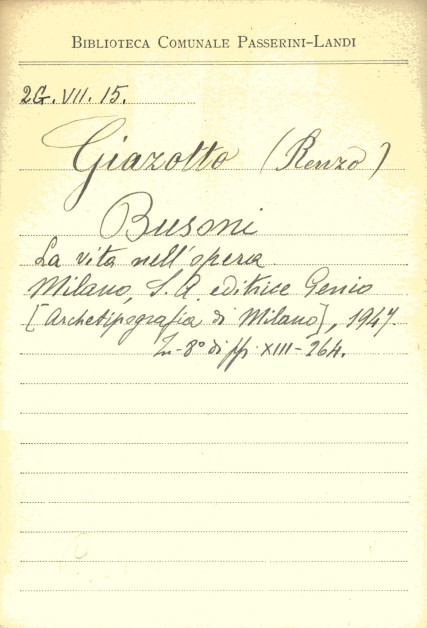 BIBLIOTECA COMUNALE PASSERINI-LANDI
2G. VII. 15.
Giazotto (Renzo)
Busoni
La vita nell'opera
Milano, S. A. editrice Genio
[Archetipografia di Milano], 1947.
In-8° di pp. XIII-264.